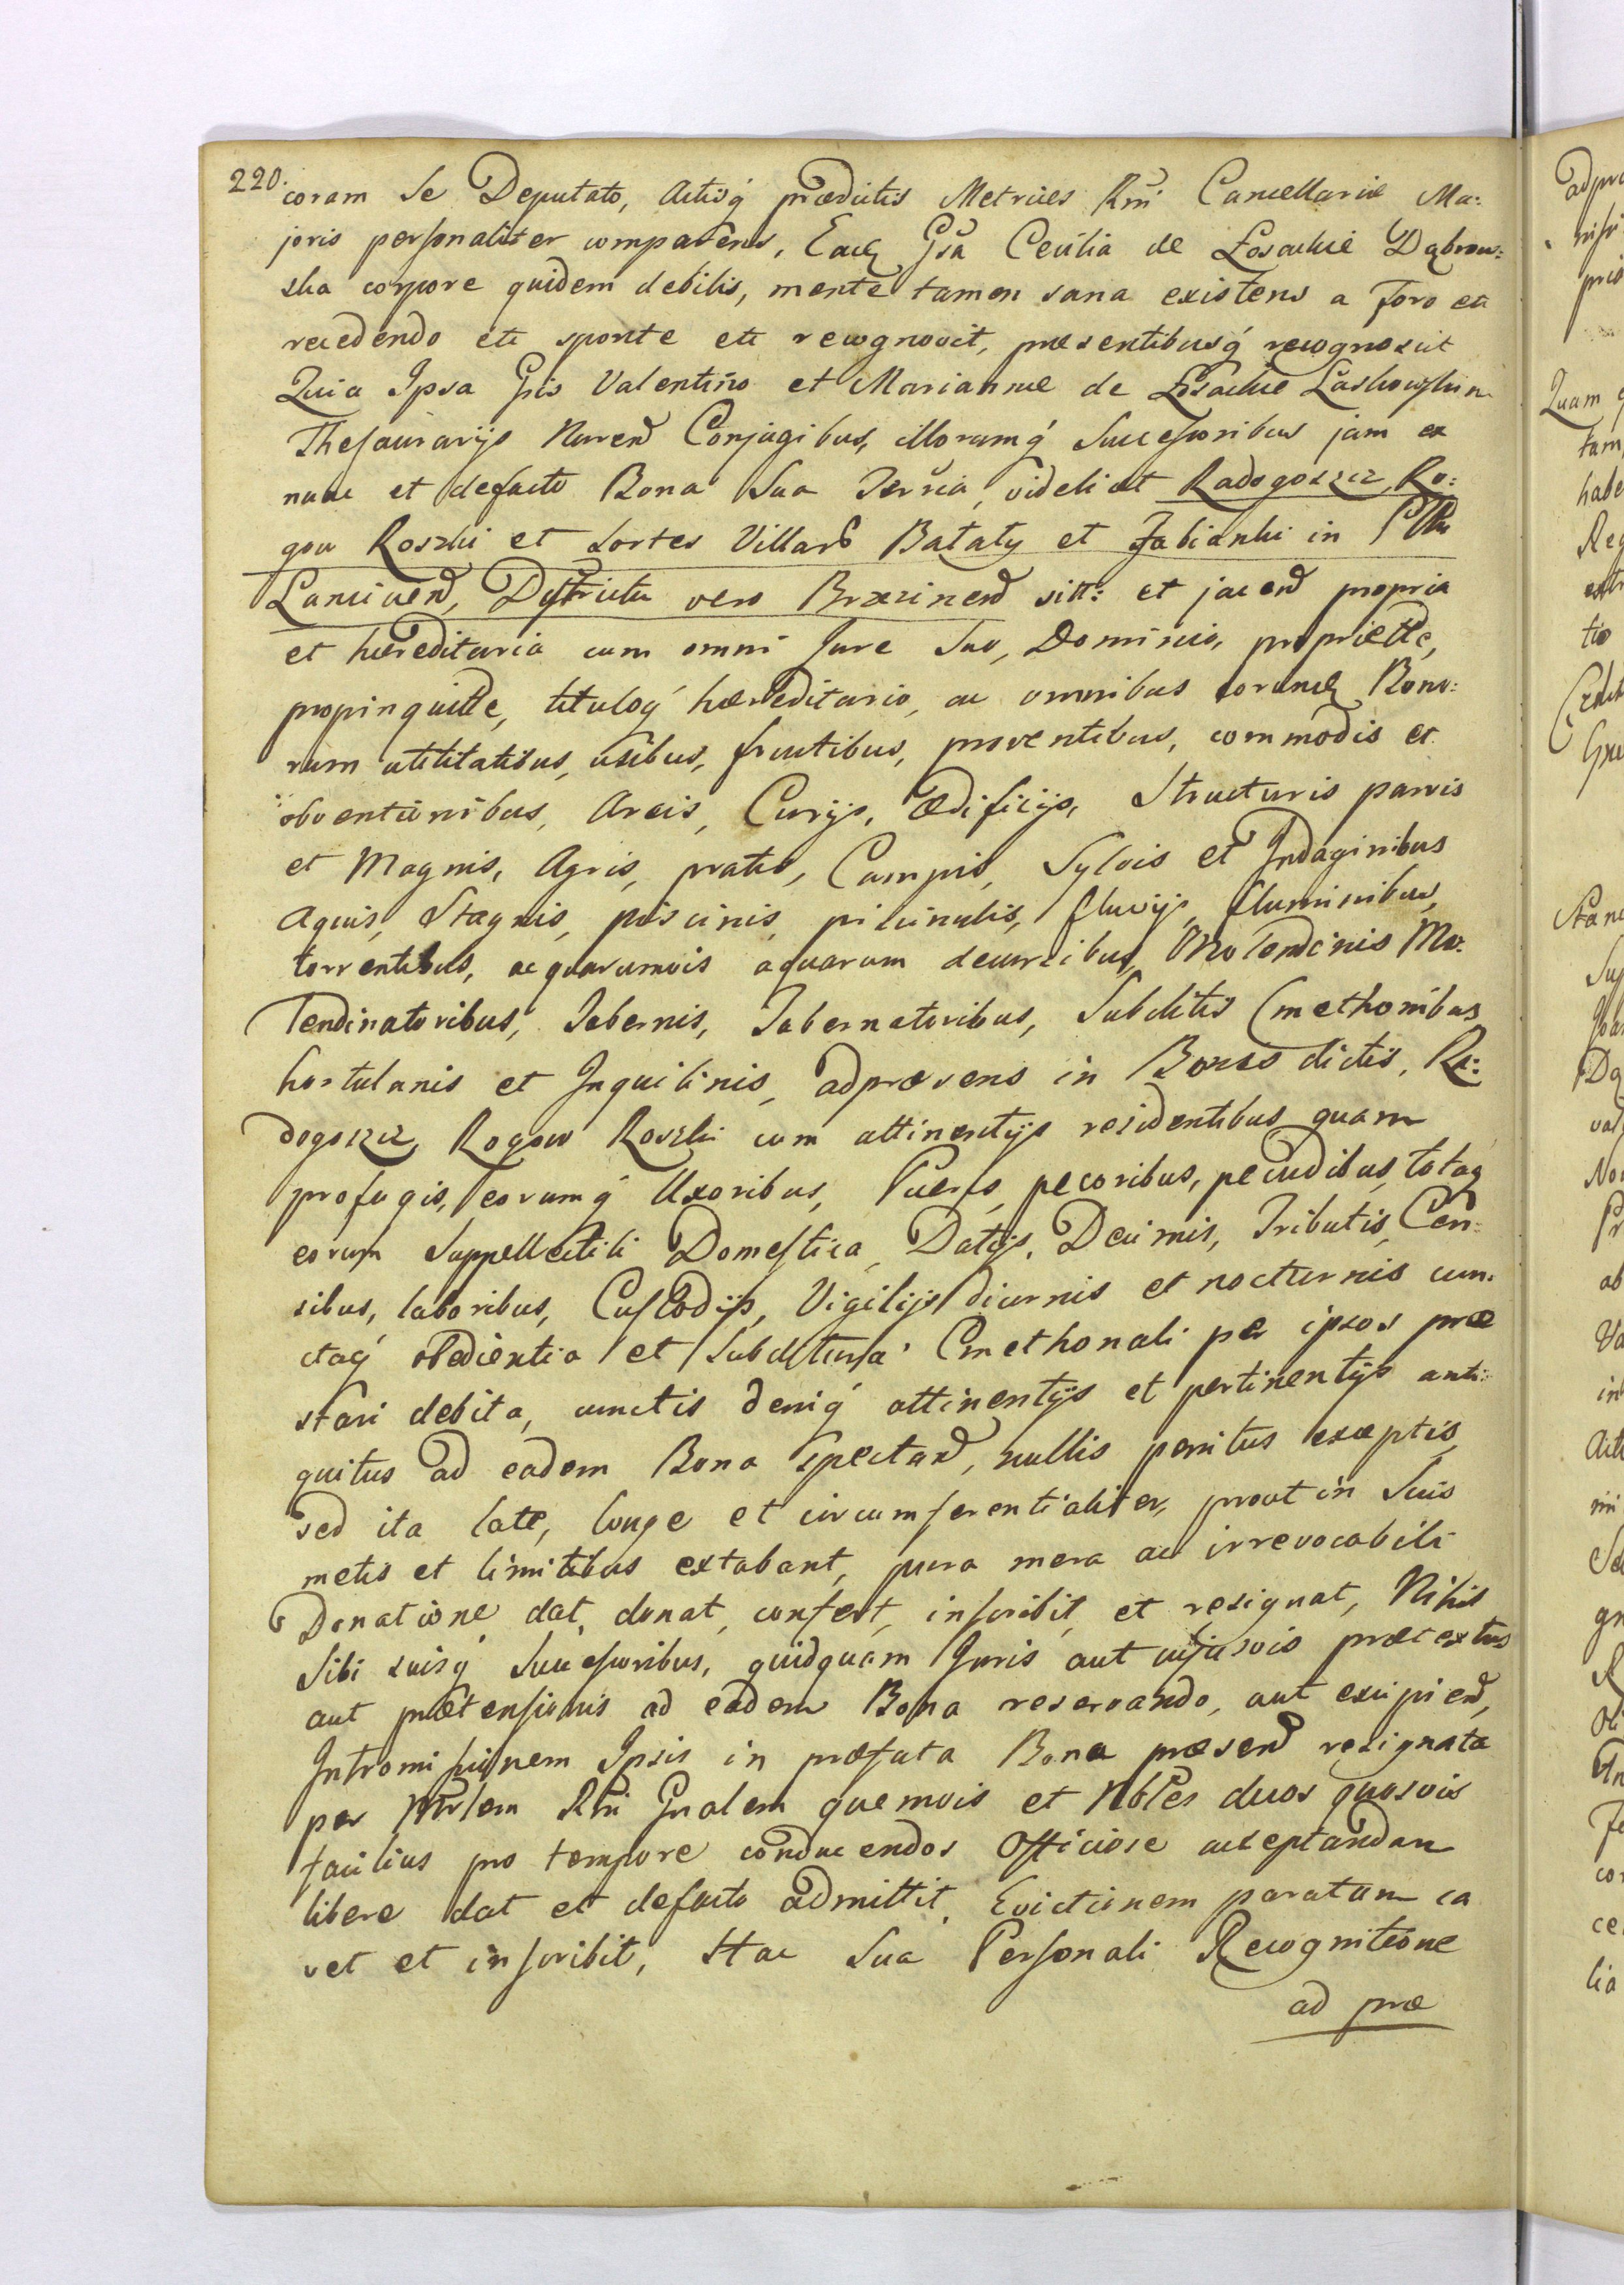 220.
coram se Deputato, Actisq́ prædictis Metrices Rni Cancellariæ Ma:
joris personaliter comparens, Eadq Gsa Cecilia de Łosackie Dąbrow:
ska corpore quidem debilis, mente tamen sana existens a Foro etc
recedendo etc sponte etc recognovit, præsentibusq́ recognoscit
Quia Ipsa Gsis Valentino et Mariannæ de Łosackie
Thesaurarijs Nurens Conjugibus, illorumq́ Successoribus jam ex
nunc et defacto Bona Sua Terria, videlicet Radogoszcz, Ro:
gow Roszki et sortes Villarū Bałaty et Fabianki in Pttu
Lancicien, Districtu vero Brzezinen sitt: et jacen propria
et hæreditaria cum omni Jure Suo, Dominio, propriette,
propinquitte, tituloq́ hæreditario, ac omnibus eorundq Bono:
rum utilitatibus, usibus, fructibus, proventibus, commodis et
obventionibus, Areis, Curijs, Ædificijs, Structuris parvis
et Magnis, Agris, pratis, Campis, Sylvis et Indaginibus
Aquis, Stagnis, piscinis, picinulis, fluvijs, fluminibus,
torrentibus, ac quarumvis aquarum decursibus, Molendinis Mo:
lendinatoribus, Tabernis, Tabernatoribus, Subditis Cmethonibus
hortulanis et Inquilinis, adpræsens in Bonis dictis, Ra:
dogoszcz, Rogow Roszki cum attinentijs residentibus quam
profugis, eorumq́ Uxoribus, Pueris, pecoribus, pecudibus, totaq
eorum Suppellectili Domestica, Datijs, Decimis, Tributis, Cen:
sibus, laboribus, Custodijs, Vigilijs diurnis et nocturnis cun:
ctaq́ obedientia et Subditura Cmethonali per ipsos præ
stari debita, cunctis deniq́ attinentijs et pertinentijs anti:
quitus ad eadem Bona Spectan, nullis penitus exceptis,
sed ita late, longe et circumferentialiter, prout in Suis
metis et limitibus extabant, pura mera ac irrevocabili
Donatione dat, donat, confert, inscribit, et resignat, Nihil
Sibi suisq́ Successoribus, quidquam Juris aut cujusvis prætextus
aut prætensionis ad eadem Bona reservando, aut excipien,
Intromissionem Ipsis in præfata Bona præsen resignata
per Mrlem Rni Gnalem quemvis et Nbles duos quosvis
facilius pro tempore conducendos Officiose acceptandam
libere dat et defacto admittit, Evictionem paratam ca
vet et inscribit, Hac Sua Personali Recognitione
ad præ